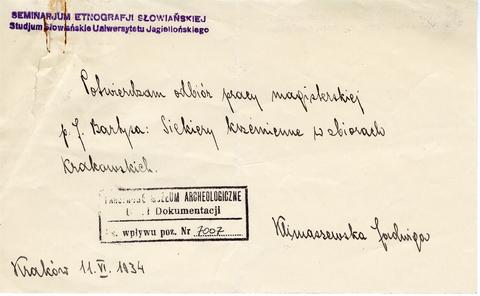 SEMINARJUM ETNOGRAFJI SŁOWIAŃSKIEJ
Studjum Słowiańskie Uniwersytetu Jagiellońskiego
Potwierdzam odbiór pracy magisterskiej
p. J. Bartysa: Siekiery krzemienne w zbiorach
krakowskich.
PAŃSTWOWE MUZEUM ARCHEOLOGICZNE
Dział Dokumentacji
wpływu poz. Nr 7007
Klimaszewska Jadwiga
Kraków 11. VI. 1934